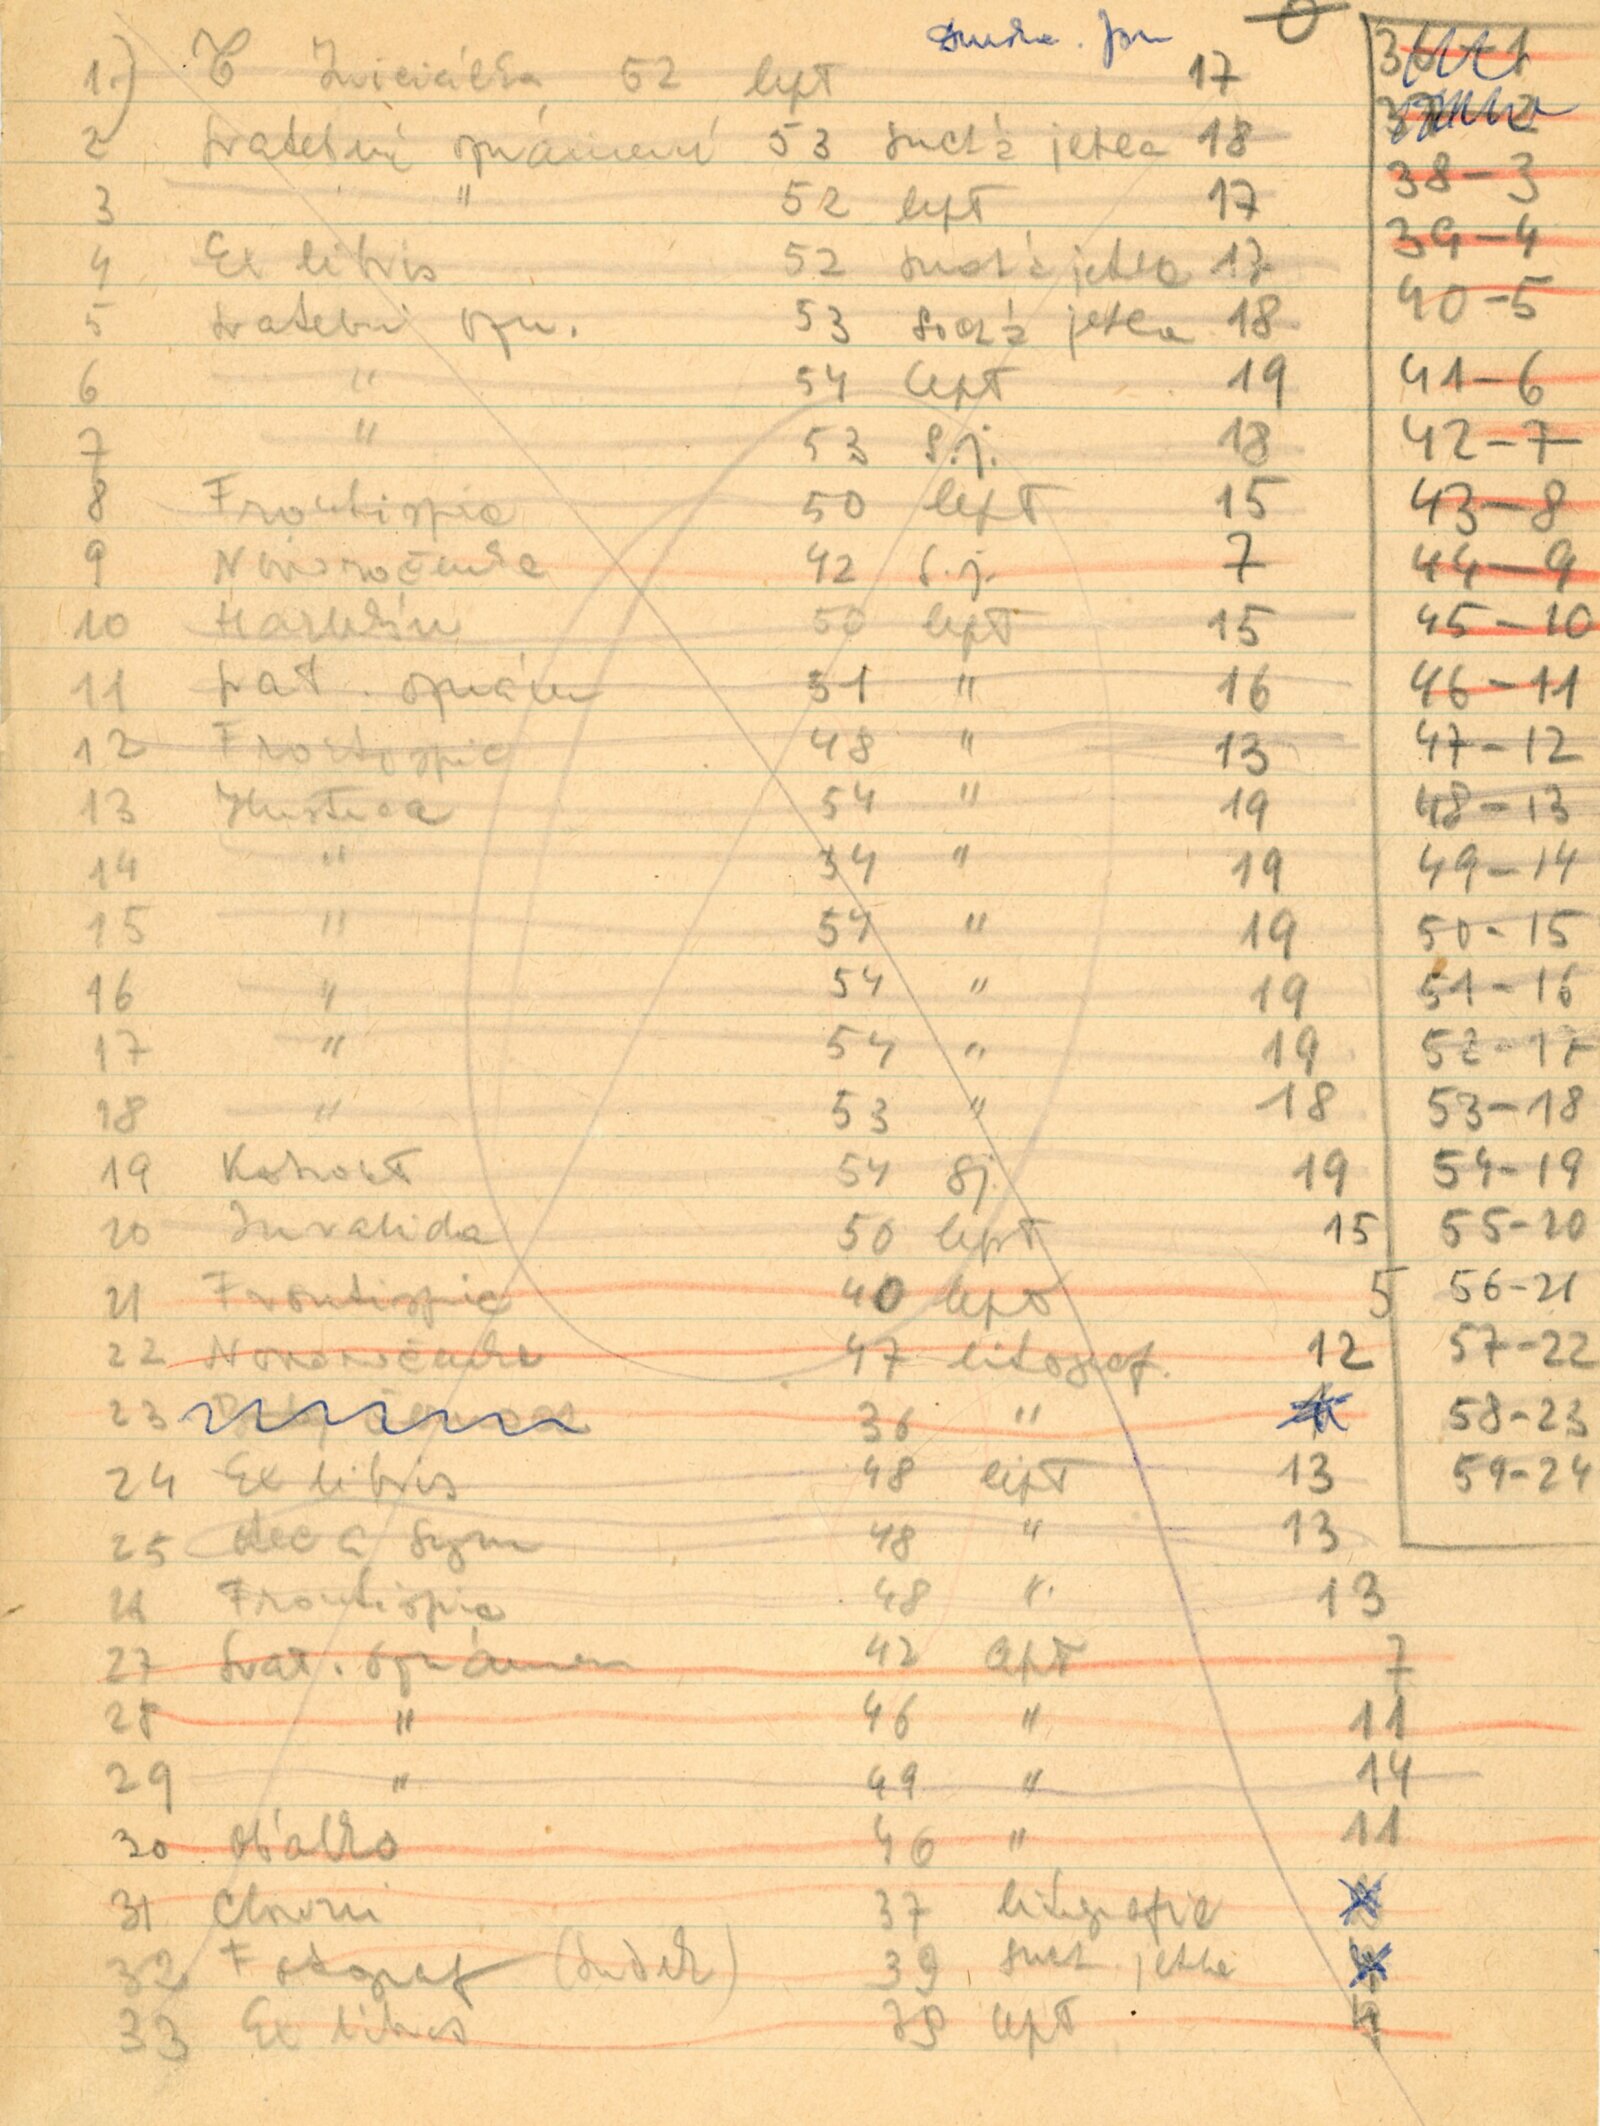 1.) 52 lept 17
2 svatební oznámení 53 suchá jehla 18
3 " 52 lept 17
4 Ex libris 52 suchá jehla 17
5 svatební ozn. 53 suchá jehla 18
6 " 54 lept 19
7 " 53 s.j. 18
8 Frontispic 50 lept 15
9 Novoročenka 42 s.j. 7
10 Harlekýn 50 lept 15
11 svat. oznám 51 " 16
12 Frontispic 48 " 13
13 54 " 19
14 " 54 " 19
15 " 54 " 19
16 " 54 " 19
17 " 54 " 19
18 " 53 " 18
19 Kohout 54 sj. 19
20 Invalida 50 lept 15
21 Frontispic 40 lept 5
22 Novoročenka 47 litograf. 12
23 36 "
24 Ex libris 48 lept 13
25 a 48 " 13
26 Frontispic 48 " 13
27 Svat. oznámen 42 lept 7
28 " 46 " 11
29 " 49 " 14
30 obálka 46 " 11
31 37 litografie
32 Fotograf (Sudek) 39 such. jehla
33 Ex libris 39 lept 4
0
36-1
2
38-3
39-4
40-5
41-6
42-7
43-8
44-9
45-10
46-11
47-12
48-13
49-14
50-15
51-16
52-17
53-18
54-19
55-20
56-21
57-22
58-23
59-24